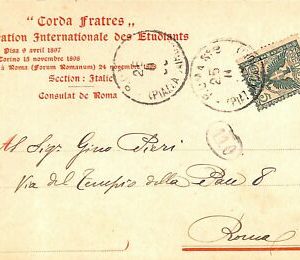 "Corda Fratres"
ration Internationale des Etudiants
Pisa 9 avril 1897
Torino 15 novembre 1898
à Roma (Forum Romanum) 24 novembre
Section: Italie
Consulat de Roma
ROMA
25
25
11
Al Sigr Gino Pieri
Via del Tempio della Pace 8
Roma